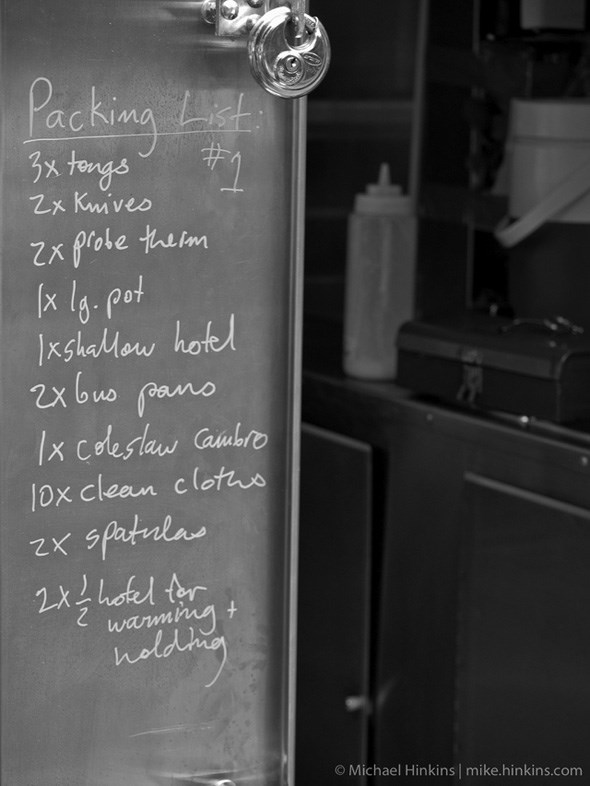 Packing List:
#1
3x tongs
2x Knives
2x probe therm
1x lg. pot
1x shallow hotel
2x bus pans
1x coleslaw Cambro
10x clean cloths
2x spatulas
2x 1/2 hotel for
warming +
holding
© Michael Hinkins | mike.hinkins.com